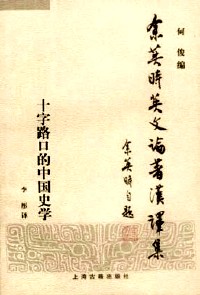 何俊编
余英时英文论著汉译集
余英时自题
十字路口的中国史学
李彤译
上海古籍出版社